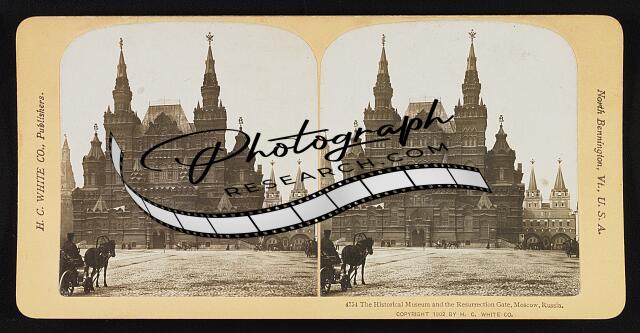 H. C. WHITE CO., Publishers.
Photograph
RESEARCH.COM
North Bennington, Vt., U. S. A.
4754 The Historical Museum and the Resurrection Gate, Moscow, Russia.
COPYRIGHT 1902 BY H. C. WHITE CO.